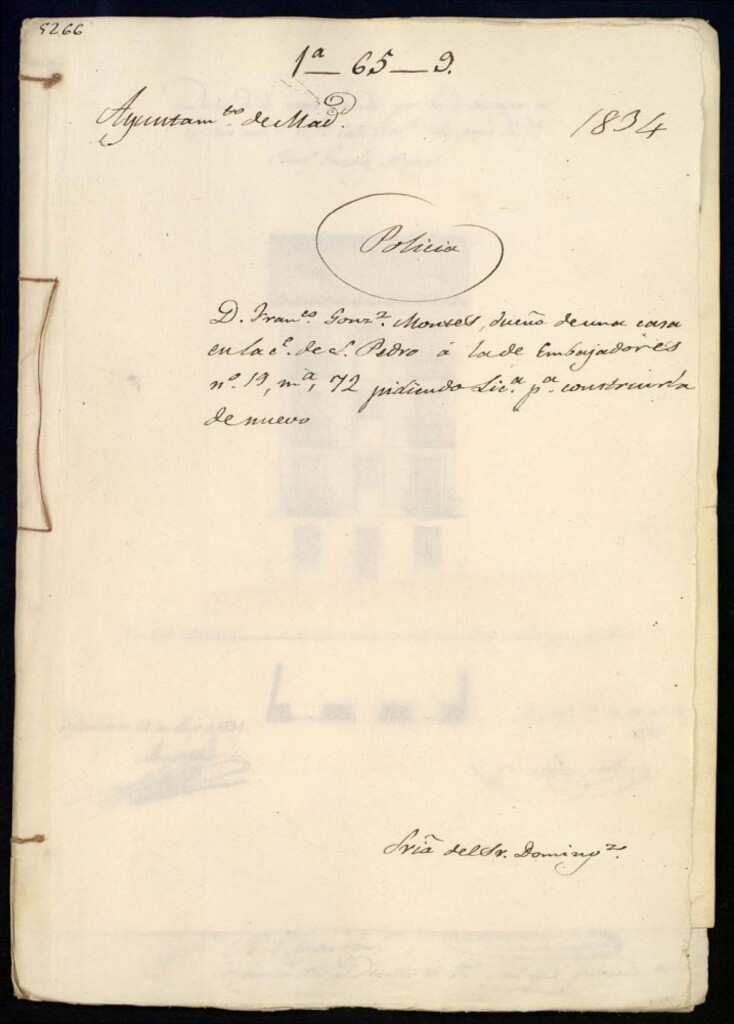 5266
1ª — 65 — 9.
Ayuntam.to de Mad.d
1834
Policia
D. Fran.co Gonz.z Montes, dueño de una casa
en la c.e de S. Pedro á la de Embajadores
nº. 19, mª, 72 pidiendo Lic.ª pª. construirla
de nuevo
Sriã del Sr. Doming.z